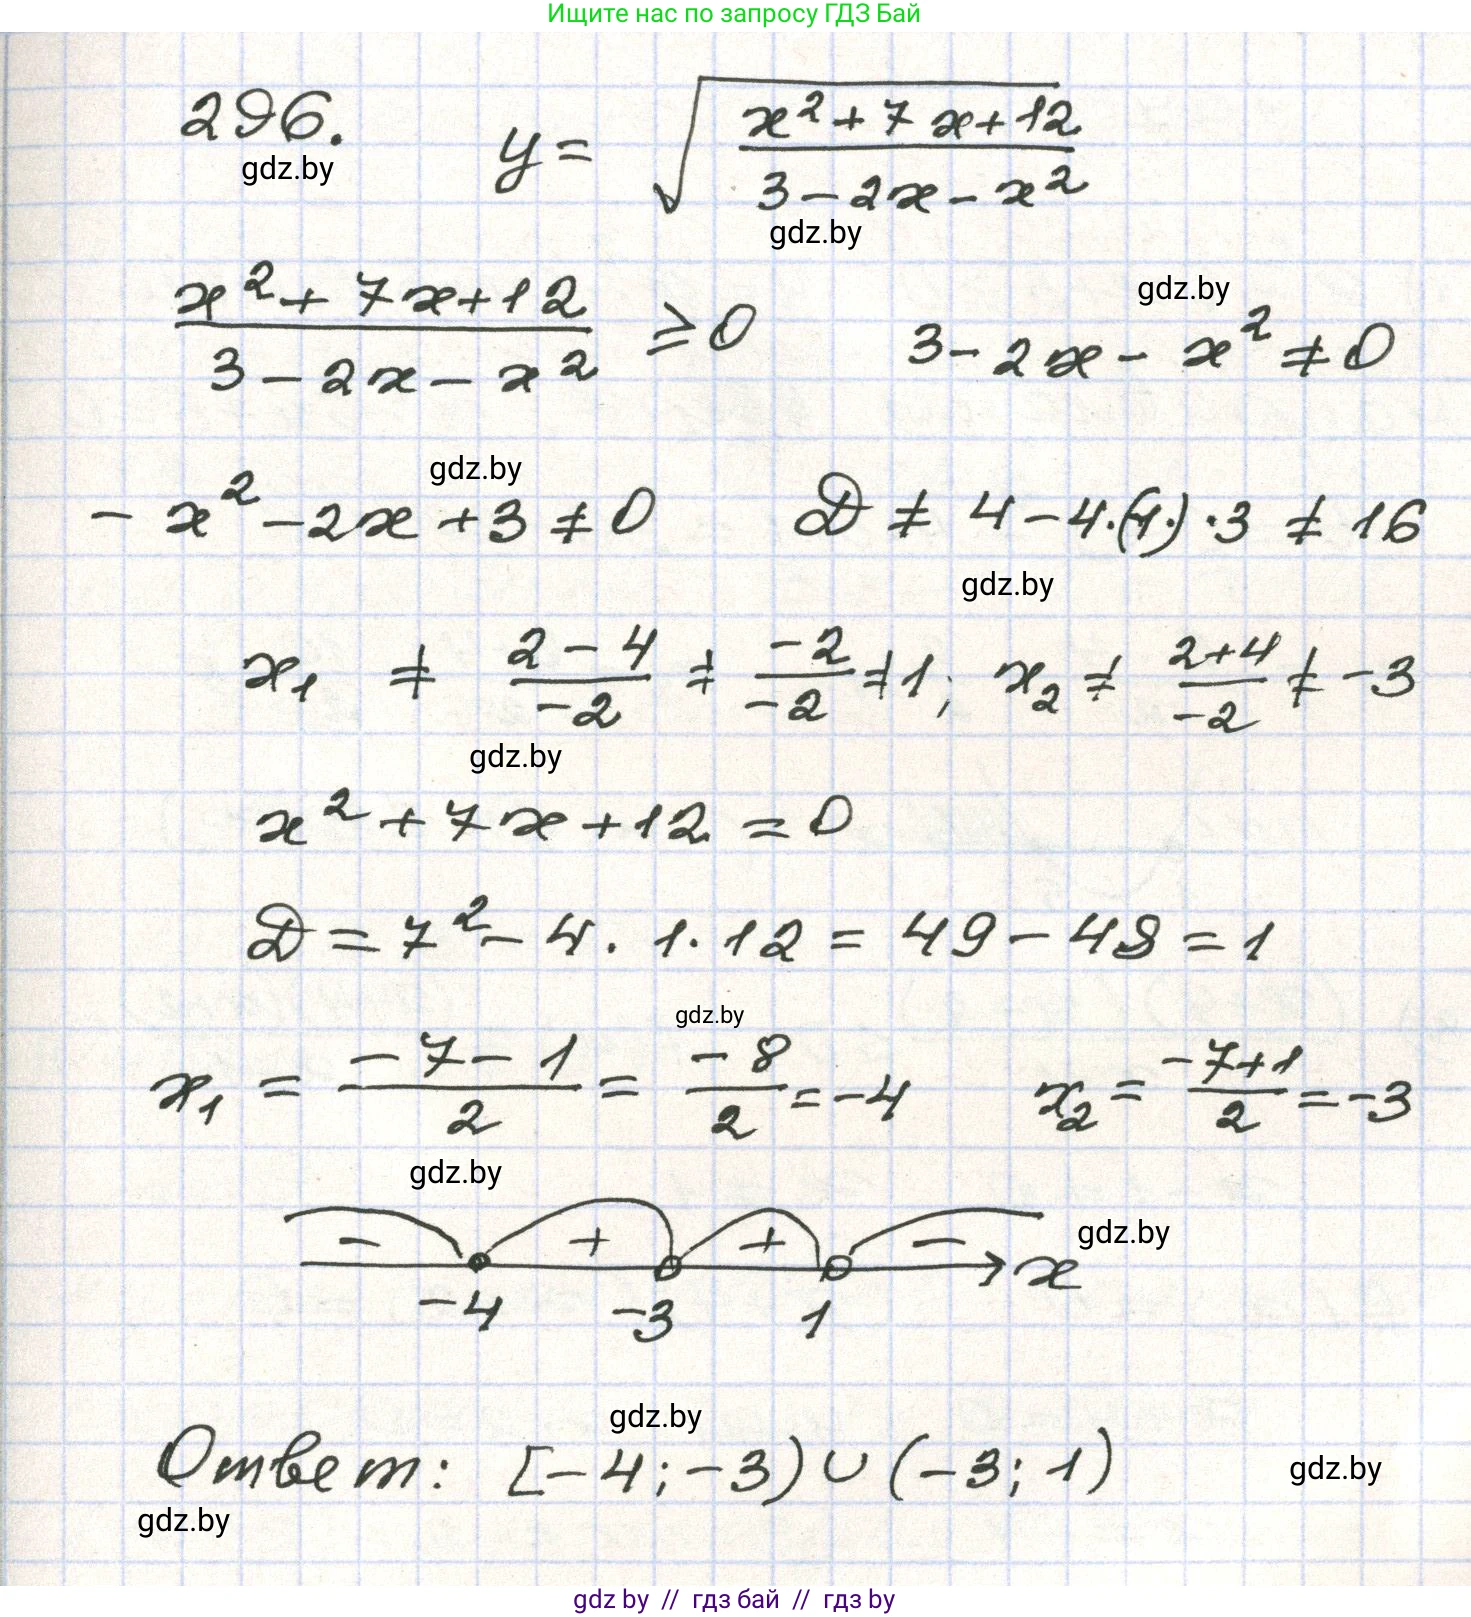 Ищите нас по запросу ГДЗ Бай
296. y = √((x² + 7x + 12)/(3 - 2x - x²))
gdz.by
gdz.by
(x² + 7x + 12)/(3 - 2x - x²) ≥ 0 3 - 2x - x² ≠ 0
gdz.by
gdz.by
- x² - 2x + 3 ≠ 0 D ≠ 4 - 4·(-1·)·3 ≠ 16
gdz.by
x₁ ≠ (2 - 4)/(-2) ≠ (-2)/(-2) ≠ 1; x₂ ≠ (2+4)/(-2) ≠ -3
gdz.by
x² + 7x + 12 = 0
D = 7² - 4 · 1 · 12 = 49 - 48 = 1
gdz.by
x₁ = (-7 - 1)/2 = (-8)/2 = -4 x₂ = (-7+1)/2 = -3
gdz.by
- + + - x
gdz.by
-4 -3 1
gdz.by
Ответ: [-4; -3) ∪ (-3; 1)
gdz.by
gdz.by
gdz by // гдз бай // гдз by